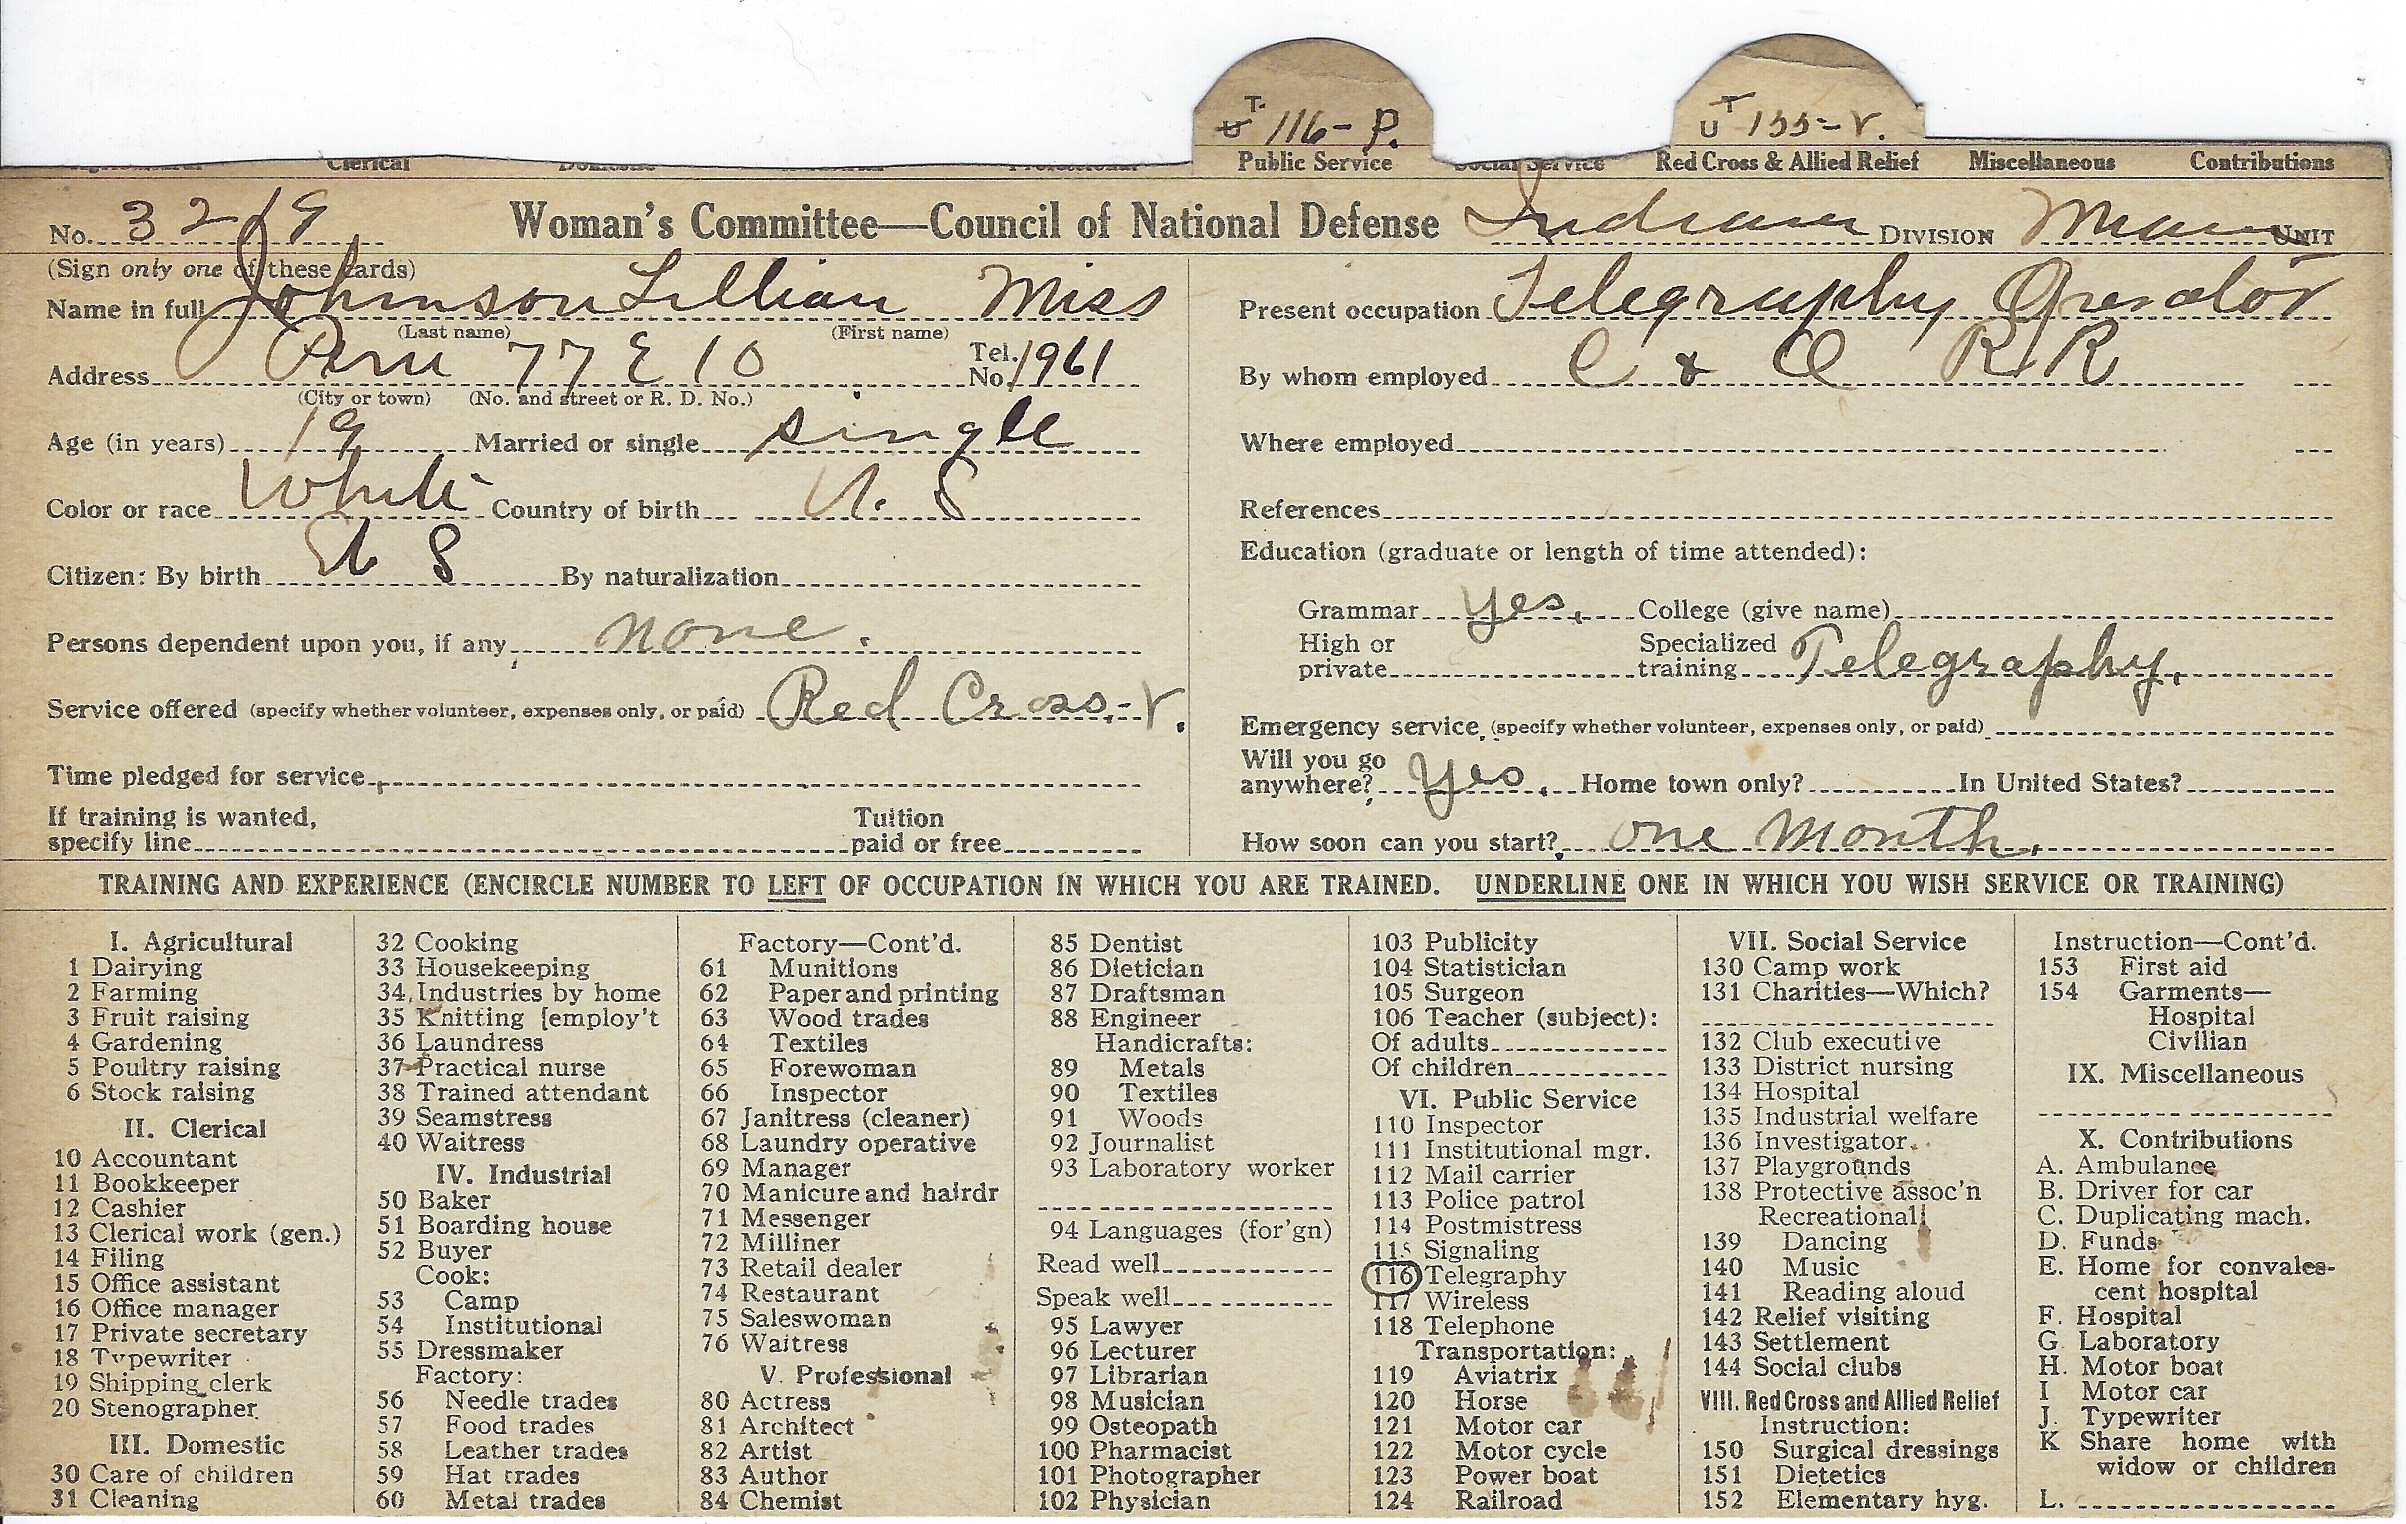 T.
U 116- P.
T
U 155- V.
Clerical Public Service Social Service Red Cross & Allied Relief Miscellaneous Contributions
No. 3219 Woman's Committee—Council of National Defense Indiana DIVISION Miami UNIT
(Sign only one of these cards)
Name in full Johnson Lillian Miss
(Last name) (First name)
Address Peru 77 E 10 Tel. No. 1961
(City or town) (No. and street or R. D. No.)
Age (in years) 19 Married or single single
Color or race White Country of birth U. S
Citizen: By birth U S By naturalization
Persons dependent upon you, if any none.
Service offered (specify whether volunteer, expenses only, or paid) Red Cross.-V.
Time pledged for service
If training is wanted,
specify line Tuition paid or free
Present occupation Telegraphy Operator
By whom employed C & O RR
Where employed
References
Education (graduate or length of time attended):
Grammar yes. College (give name)
High or private Specialized training Telegraphy.
Emergency service (specify whether volunteer, expenses only, or paid)
Will you go
anywhere? yes. Home town only? In United States?
How soon can you start? one month.
TRAINING AND EXPERIENCE (ENCIRCLE NUMBER TO LEFT OF OCCUPATION IN WHICH YOU ARE TRAINED. UNDERLINE ONE IN WHICH YOU WISH SERVICE OR TRAINING)
I. Agricultural
1 Dairying
2 Farming
3 Fruit raising
4 Gardening
5 Poultry raising
6 Stock raising
II. Clerical
10 Accountant
11 Bookkeeper
12 Cashier
13 Clerical work (gen.)
14 Filing
15 Office assistant
16 Office manager
17 Private secretary
18 Typewriter
19 Shipping clerk
20 Stenographer
III. Domestic
30 Care of children
31 Cleaning
32 Cooking
33 Housekeeping
34 Industries by home
35 Knitting [employ't
36 Laundress
37 Practical nurse
38 Trained attendant
39 Seamstress
40 Waitress
IV. Industrial
50 Baker
51 Boarding house
52 Buyer
Cook:
53 Camp
54 Institutional
55 Dressmaker
Factory:
56 Needle trades
57 Food trades
58 Leather trades
59 Hat trades
60 Metal trades
Factory—Cont'd.
61 Munitions
62 Paper and printing
63 Wood trades
64 Textiles
65 Forewoman
66 Inspector
67 Janitress (cleaner)
68 Laundry operative
69 Manager
70 Manicure and hairdr
71 Messenger
72 Milliner
73 Retail dealer
74 Restaurant
75 Saleswoman
76 Waitress
V. Professional
80 Actress
81 Architect
82 Artist
83 Author
84 Chemist
85 Dentist
86 Dietician
87 Draftsman
88 Engineer
Handicrafts:
89 Metals
90 Textiles
91 Woods
92 Journalist
93 Laboratory worker
94 Languages (for'gn)
Read well
Speak well
95 Lawyer
96 Lecturer
97 Librarian
98 Musician
99 Osteopath
100 Pharmacist
101 Photographer
102 Physician
103 Publicity
104 Statistician
105 Surgeon
106 Teacher (subject):
Of adults
Of children
VI. Public Service
110 Inspector
111 Institutional mgr.
112 Mail carrier
113 Police patrol
114 Postmistress
115 Signaling
116 Telegraphy
117 Wireless
118 Telephone
Transportation:
119 Aviatrix
120 Horse
121 Motor car
122 Motor cycle
123 Power boat
124 Railroad
VII. Social Service
130 Camp work
131 Charities—Which?
132 Club executive
133 District nursing
134 Hospital
135 Industrial welfare
136 Investigator
137 Playgrounds
138 Protective assoc'n
Recreational
139 Dancing
140 Music
141 Reading aloud
142 Relief visiting
143 Settlement
144 Social clubs
VIII. Red Cross and Allied Relief
Instruction:
150 Surgical dressings
151 Dietetics
152 Elementary hyg.
Instruction—Cont'd.
153 First aid
154 Garments—
Hospital
Civilian
IX. Miscellaneous
X. Contributions
A. Ambulance
B. Driver for car
C. Duplicating mach.
D. Funds
E. Home for convales-
cent hospital
F. Hospital
G. Laboratory
H. Motor boat
I Motor car
J. Typewriter
K Share home with
widow or children
L.